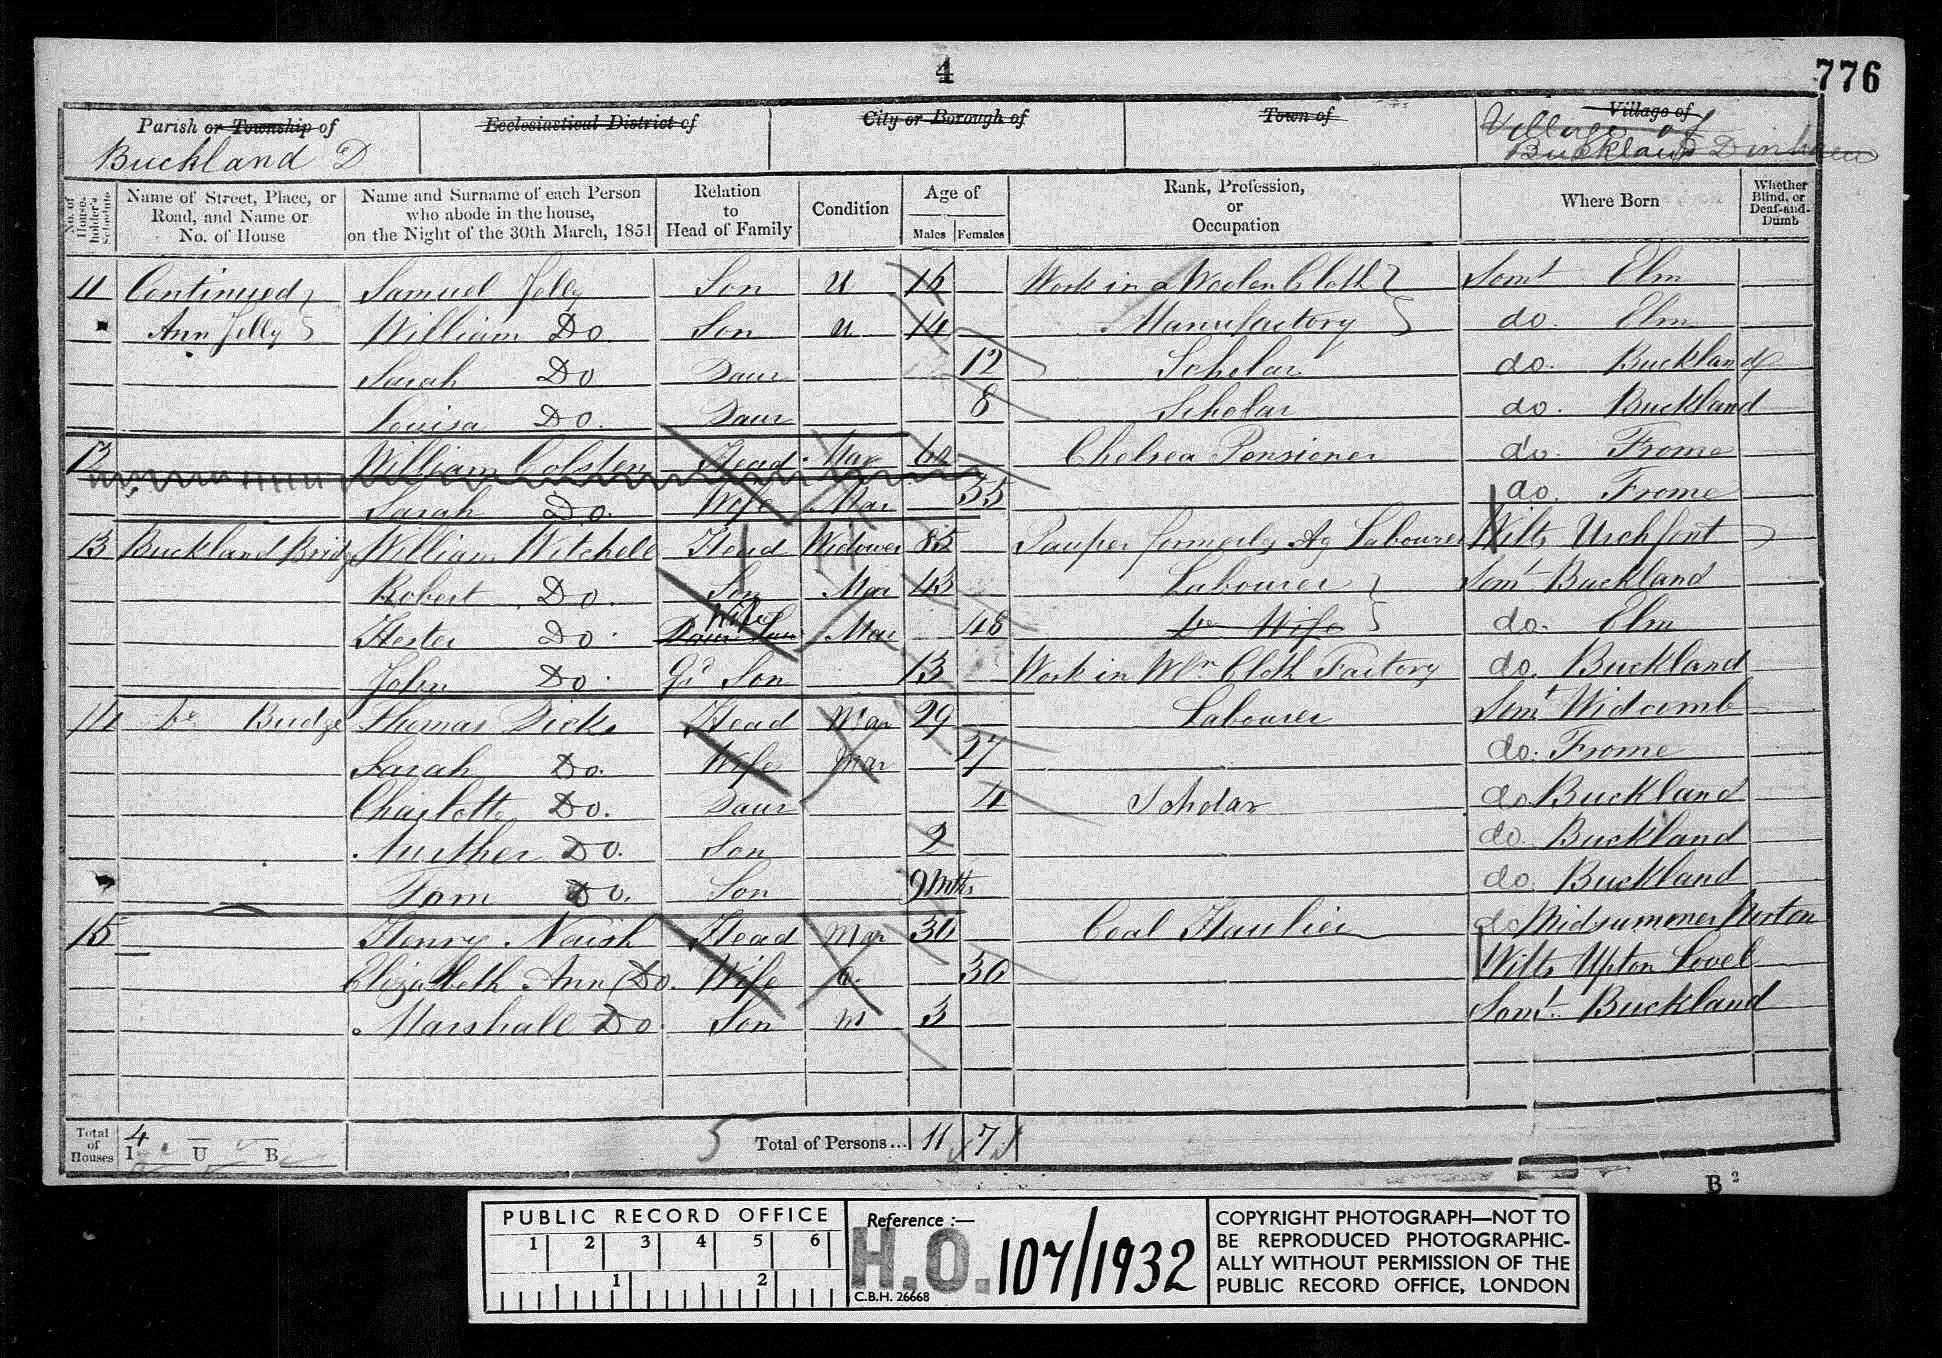 4
776
Parish or Township of
Buckland D
Ecclesiastical District of
City or Borough of
Town of
Village of
Village of
Buckland Dinham
No. of House-holder's Schedule
Name of Street, Place, or Road, and Name or No. of House
Name and Surname of each Person who abode in the house, on the Night of the 30th March, 1851
Relation to Head of Family
Condition
Age of
Males Females
Rank, Profession, or Occupation
Where Born
Whether Blind, or Deaf-and-Dumb
11 Continued Samuel Jelly Son U 16 Work in a Woolen Cloth Somt Elm
Ann Jelly William Do Son U 14 Manufactory do. Elm
Sarah Do Daur 12 Scholar do. Buckland
Louisa Do. Daur 8 Scholar do. Buckland
12 William Colsten Head Mar 60 Chelsea Pensioner do. Frome
Sarah Do. Wife Mar 35 do. Frome
13 Buckland Bridge William Witchell Head Widower 85 Pauper formerly Ag Labourer Wilts Urchfont
Robert Do. Son Mar 43 Labourer Somt Buckland
Hester Do. Daur Law Wife Mar 48 Wife do. Elm
John Do. Gd Son 13 Work in Wln Cloth Factory do. Buckland
14 Do Bridge Thomas Dicks Head Mar 29 Labourer Somt Widcomb
Sarah Do. Wife Mar 27 do. Frome
Charlotte Do. Daur 4 Scholar do. Buckland
Aurther Do. Son 2 do. Buckland
Tom Do. Son 9 Mths do. Buckland
15 Henry Naish Head Mar 30 Coal Haulier do Midsummer Norton
Elizabeth Ann Do. Wife Do. 30 Wilts Upton Lovel
Marshall Do Son 3 Somt. Buckland
Total of Houses 4 I U B 5 Total of Persons... 11 7
B2
PUBLIC RECORD OFFICE
1 2 3 4 5 6
1 2
Reference :—
H.O. 107/1932
C.B.H. 26668
COPYRIGHT PHOTOGRAPH—NOT TO
BE REPRODUCED PHOTOGRAPHIC-
ALLY WITHOUT PERMISSION OF THE
PUBLIC RECORD OFFICE, LONDON